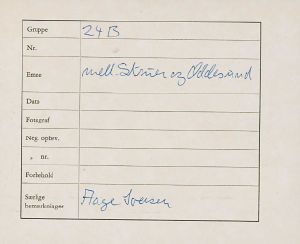 Gruppe 24 B
Nr.
Emne mell. Struer og Oddesund
Dato
Fotograf
Neg. opbev.
" nr.
Forbehold
Særlige bemærkninger Aage Iversen